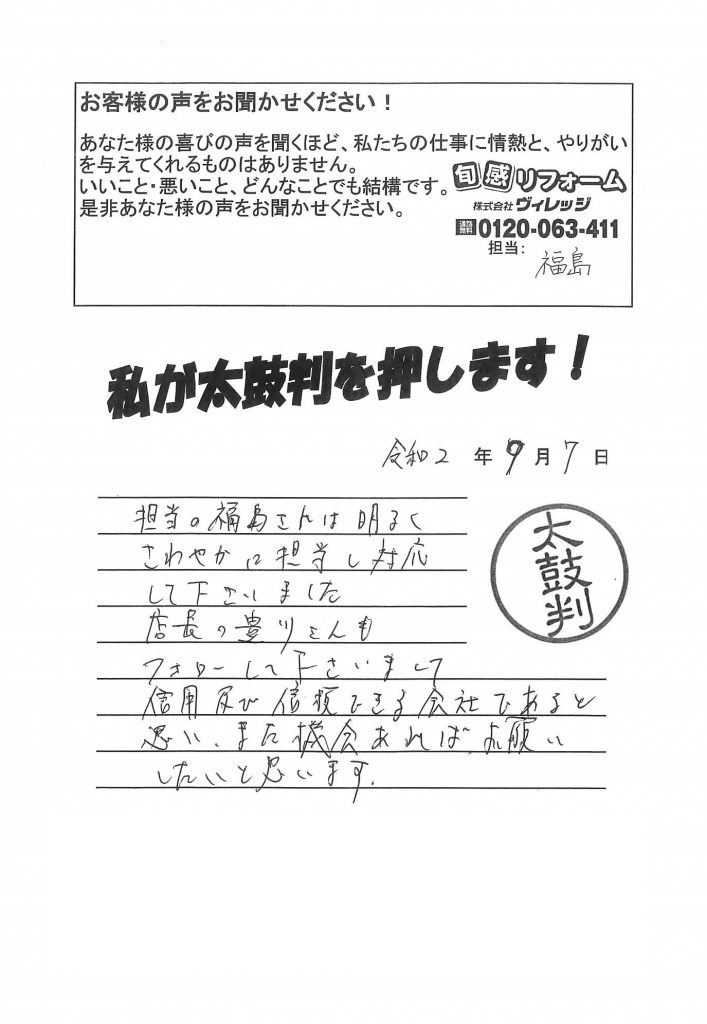 お客様の声をお聞かせください！
あなた様の喜びの声を聞くほど、私たちの仕事に情熱と、やりがい
を与えてくれるものはありません。
いいこと・悪いこと、どんなことでも結構です。
是非あなた様の声をお聞かせください。
旬感リフォーム
株式会社ヴィレッジ
通話無料 0120-063-411
担当：福島
私が太鼓判を押します！
令和2年9月7日
担当の福島さんは明るく
さわやかに担当し対応
して下さいました
店長の豊川さんも
フォローして下さいまして
信用及び信頼できる会社であると
思い、また機会あればお願い
したいと思います.
太鼓判